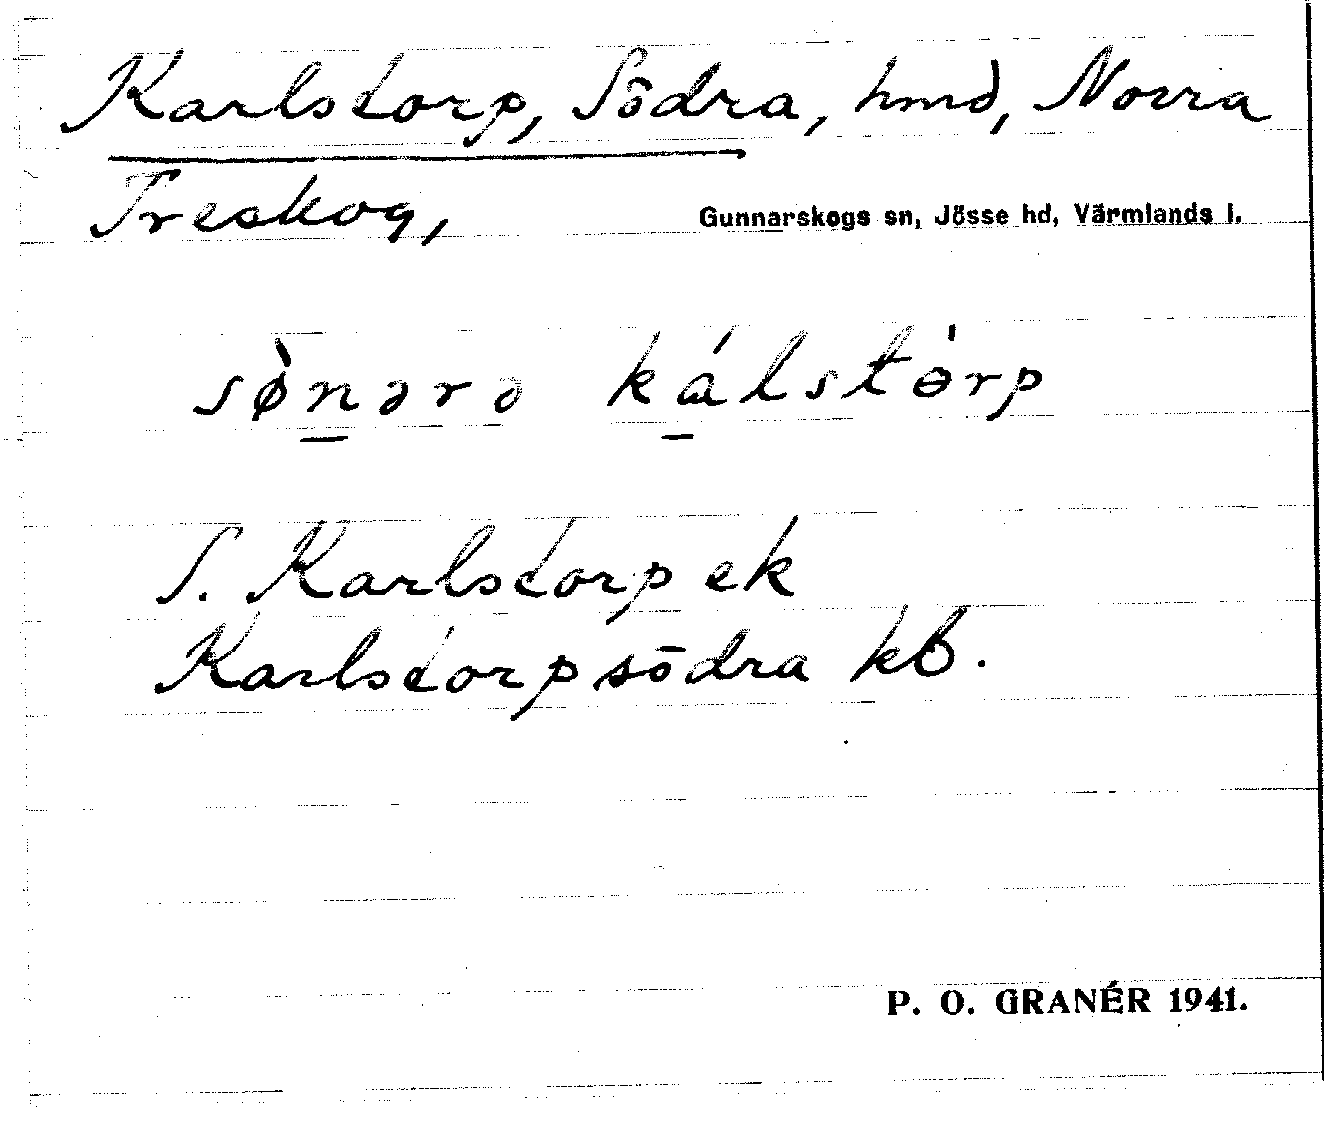 Karlstorp, Södra, hmd, Norra
Treskog,
Gunnarskogs sn, Jösse hd, Värmlands l.
sø̀nərə kálstòrp
S. Karlstorp ek
Karlstorp södra kb.
P. O. GRANÉR 1941.